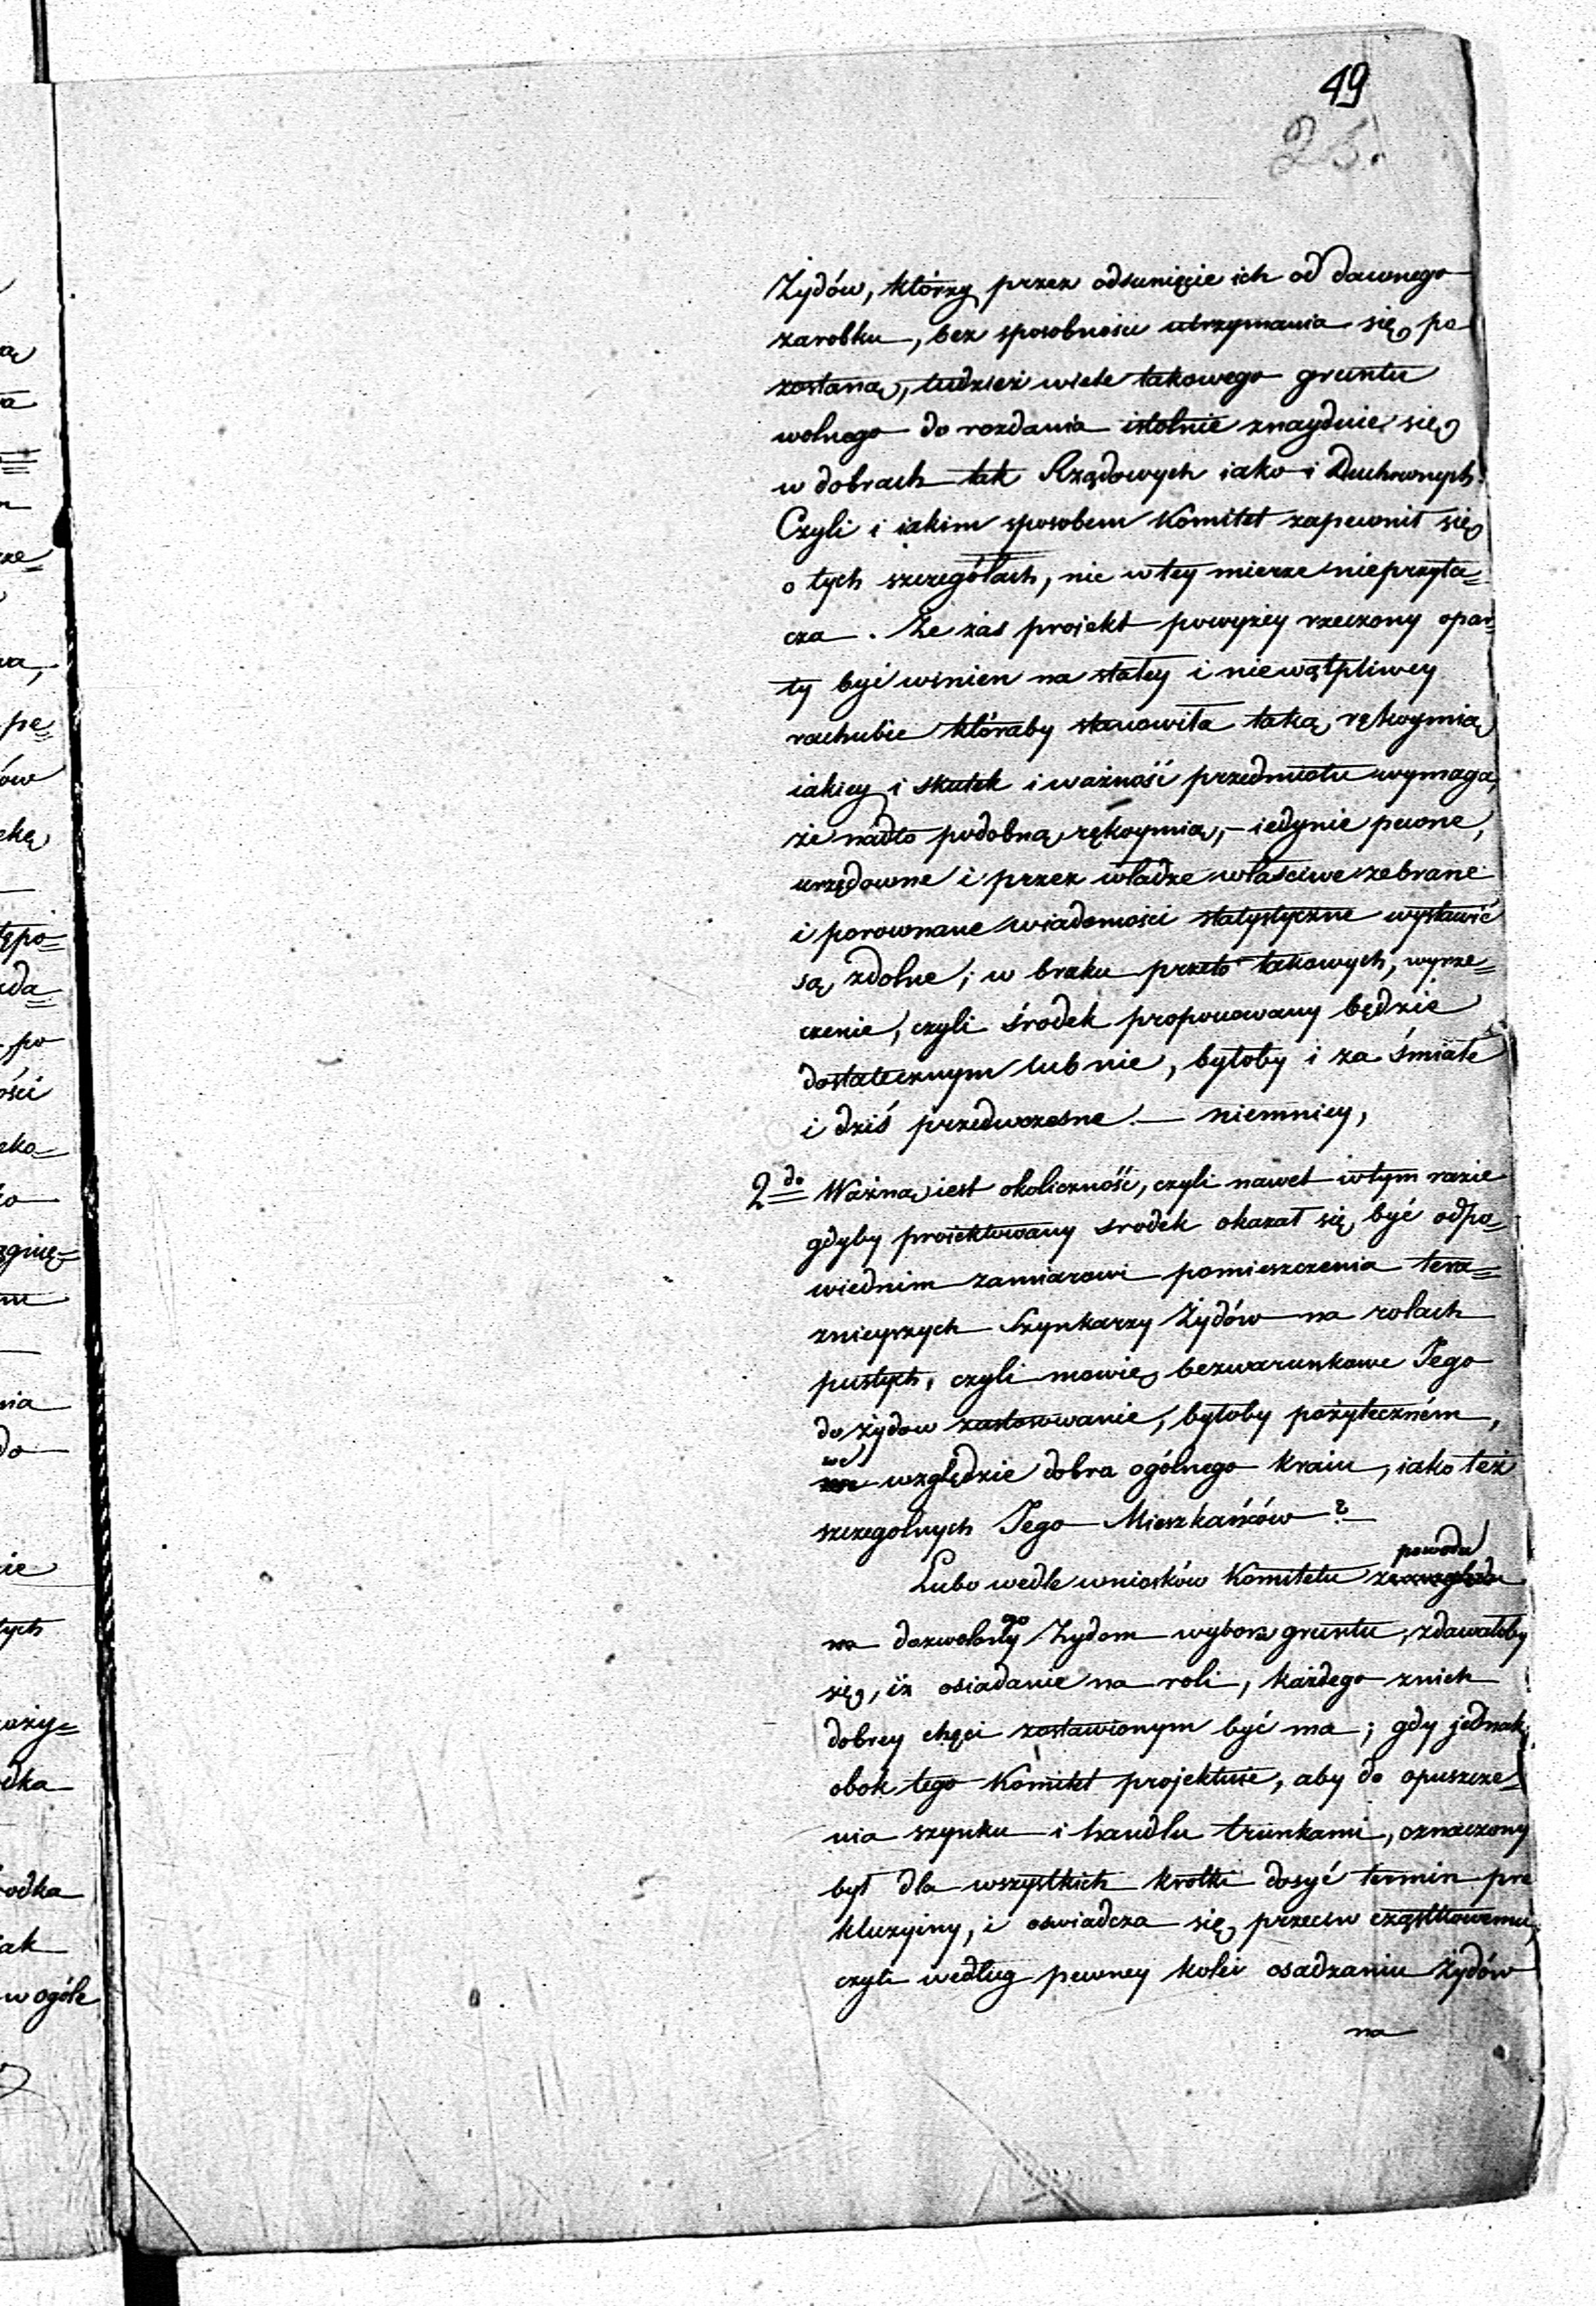 49
25.
Żydów, którzy przez odsunięcie ich od dawnego
zarobku, bez sposobności utrzymania się po
zostaną, tudzież wiele takowego gruntu
wolnego do rozdania istotnie znayduie się
w dobrach tak Rządowych iako i Duchownych.
Czyli i iakim sposobem Komitet zapewnił się
o tych szczegółach, nic w tey mierze nieprzyta=
cza. Że zaś projekt powyżey rzeczony opar=
ty być winien na stałey i niewątpliwey
rachubie któraby stanowiła taką rękoymią
iakiey i skutek i ważność przedmiotu wymaga,
że nadto podobną rękoymią, – iedynie pewne,
urzędowne i przez władze właściwe zebrane
i porownane wiadomości statystyczne wystawić
są zdolne; w braku przeto takowych, wyrze=
czenie, czyli środek proponowany będzie
dostatecznym lub nie, byłoby i za śmiałe
i dziś przedwczesne. — niemniey,
2do Ważną iest okoliczność, czyli nawet w tym razie
gdyby proiektowany srodek okazał się być odpo=
wiednim zamiarowi pomieszczenia tera=
znieyszych Szynkarzy Żydów na rolach
pustych, czyli mowię bezwarunkowe Jego
do żydow zastosowanie, byłoby pożyteczném,
we względzie dobra ogólnego kraiu, iako też
szczegolnych Jego Mieszkańców?
Lubo wedle wniosków Komitetu z powodu
dozwolonego Żydom wyboru gruntu, zdawałoby
się, iż osiadanie na roli, każdego z nich
dobrey chęci zostawionym być ma; gdy jednak
obok tego Komitet projektuie, aby do opuszcze=
nia szynku i handlu trunkami, oznaczony
był dla wszystkich krotki dosyć termin pre
kluzyiny, i oswiadcza się przeciw cząstkowemu,
czyli według pewney kolei osadzaniu Żydów
na
ą
a
pe=
ów
tępo=
da=
po
ości
nia
do
tych
dka
rodka
ak
w ogóle